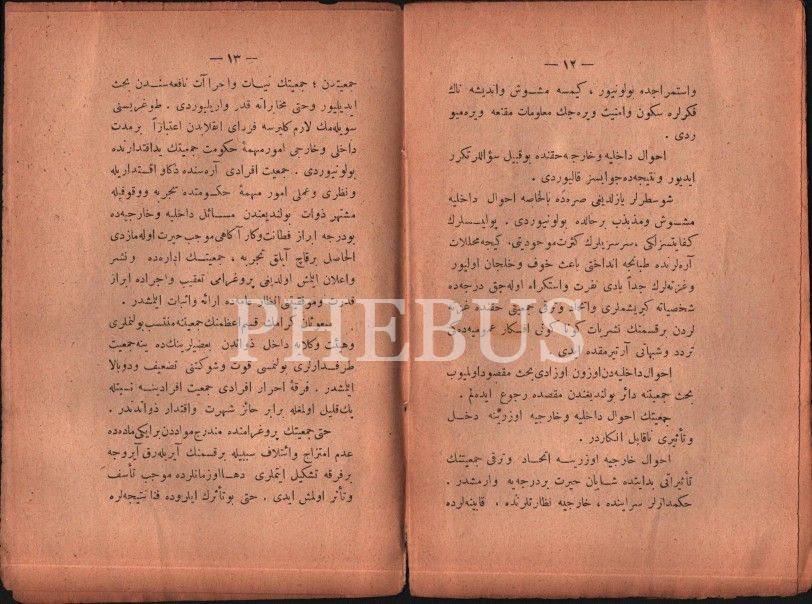 — ١٢ —
واستمراجده بولونیور ، كیمسه مشوش واندیشه ناك
فكرلره سكون وامنیت ویره جك معلومات مقنعه ویره میو
ردی .
احوال داخلیه و خارجیه حقنده بوقبیل سؤاللر تكرر
ایدیور و نتیجه ده جوابسز قالیوردی .
شو سطرلر یازلدیغی صره ده بالخاصه احوال داخلیه
مشوش ومذبذب برحالده بولونیوردی . پولیسلرك
كفایتسزلكی ، سرسریلرك كثرت موجودیتی ، كیجه محلات
آره لرنده طبانجه انداختی باعث خوف وخلجان اولیور
وغزته لرك جداً بادئ نفرت واستكراه اوله جق درجه ده
شخصیاته كریشملری واتحاد و ترقی جمعیتی حقنده غزته
لردن برقسمنك نشریات افكار عمومیه ده
تردد وشبهاتی آرتیرمقده ایدی .
احوال داخلیه دن اوزون اوزادی بحث مقصود اولمیوب
بحث جمعیته دائر بولندیغندن مقصده رجوع ایده لم .
جمعیتك احوال داخلیه و خارجیه اوزرینه دخل
وتأثیری ناقابل انكاردر .
احوال خارجیه اوزرینه اتحاد وترقی جمعیتنك
تأثیراتی بدایتده شایان حیرت بردرجه یه وارمشدر .
حكمدارلر سراینده ، خارجیه نظارتلرنده . قابینه لرده
— ١٣ —
جمعیتدن ؛ جمعیتك نیات واجراآت نافعه سندن بحث
ایدیلیور وحتی مخابراته قدر واریلیوردی . طوغریسنی
سویله مك لازم كلیرسه فردای انقلابدن اعتباراً برمدت
داخلی وخارجی امور مهمهٔ حكومت جمعیتك ید اقتدارنده
بولونیوردی . جمعیت افرادی آره سنده ذكا و اقتداریله
ونظری وعملی امور مهمهٔ حكومتده تجربه ووقوفیله
مشتهر ذوات بولندیغندن مسائل داخلیه وخارجیه ده
بودرجه ابراز فطانت وكار آكاهی موجب حیرت اوله مازدی
الحاصل برقاچ آیلق تجربه ، جمعیتك اداره ده ونشر
واعلان ایتمش اولدیغی پروغرامی تعقیب واجراده ابراز
قدرت وموفقیتی انظار عامه ده ارائه واثبات ایتمشدر .
مبعوثان كرامك قسم اعظمنك جمعیته منتسب بولنملری
وهیئت وكلایه داخل ذواتدن بعضیلرینك ده ینه جمعیت
طرفدارلری بولنمسی قوت وشوكتنی تضعیف ودوبالا
ایتمشدر . فرقهٔ احرار افرادی جمعیت افرادینه نسبتله
پك قلیل اولمقله برابر حائز شهرت واقتدار ذواتدندر .
حتی جمعیتك پروغرامنده مندرج مواددن برایكی ماده ده
عدم امتزاج وائتلاف سببیله برقسمنك آیریله رق آیروجه
برفرقه تشكیل ایتملری دها اوزمانلرده موجب تأسف
وتأثر اولمش ایدی . حتی بوتأثرك ایلروده فنا نتیجه لره
PHEBUS